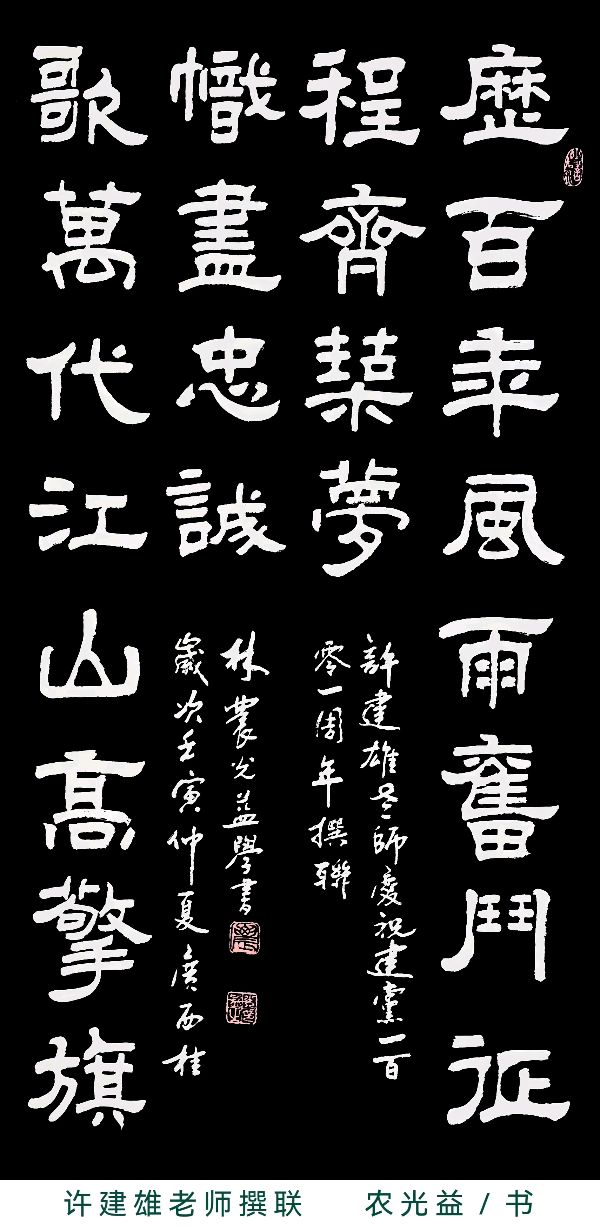 歷百年風雨奮鬥征
程齊築夢
許建雄老師慶祝建黨一百
零一周年撰聯
歌萬代江山高擎旗
幟盡忠誠
歲次壬寅仲夏廣西桂
林農光益學書
许建雄老师撰联 农光益/书